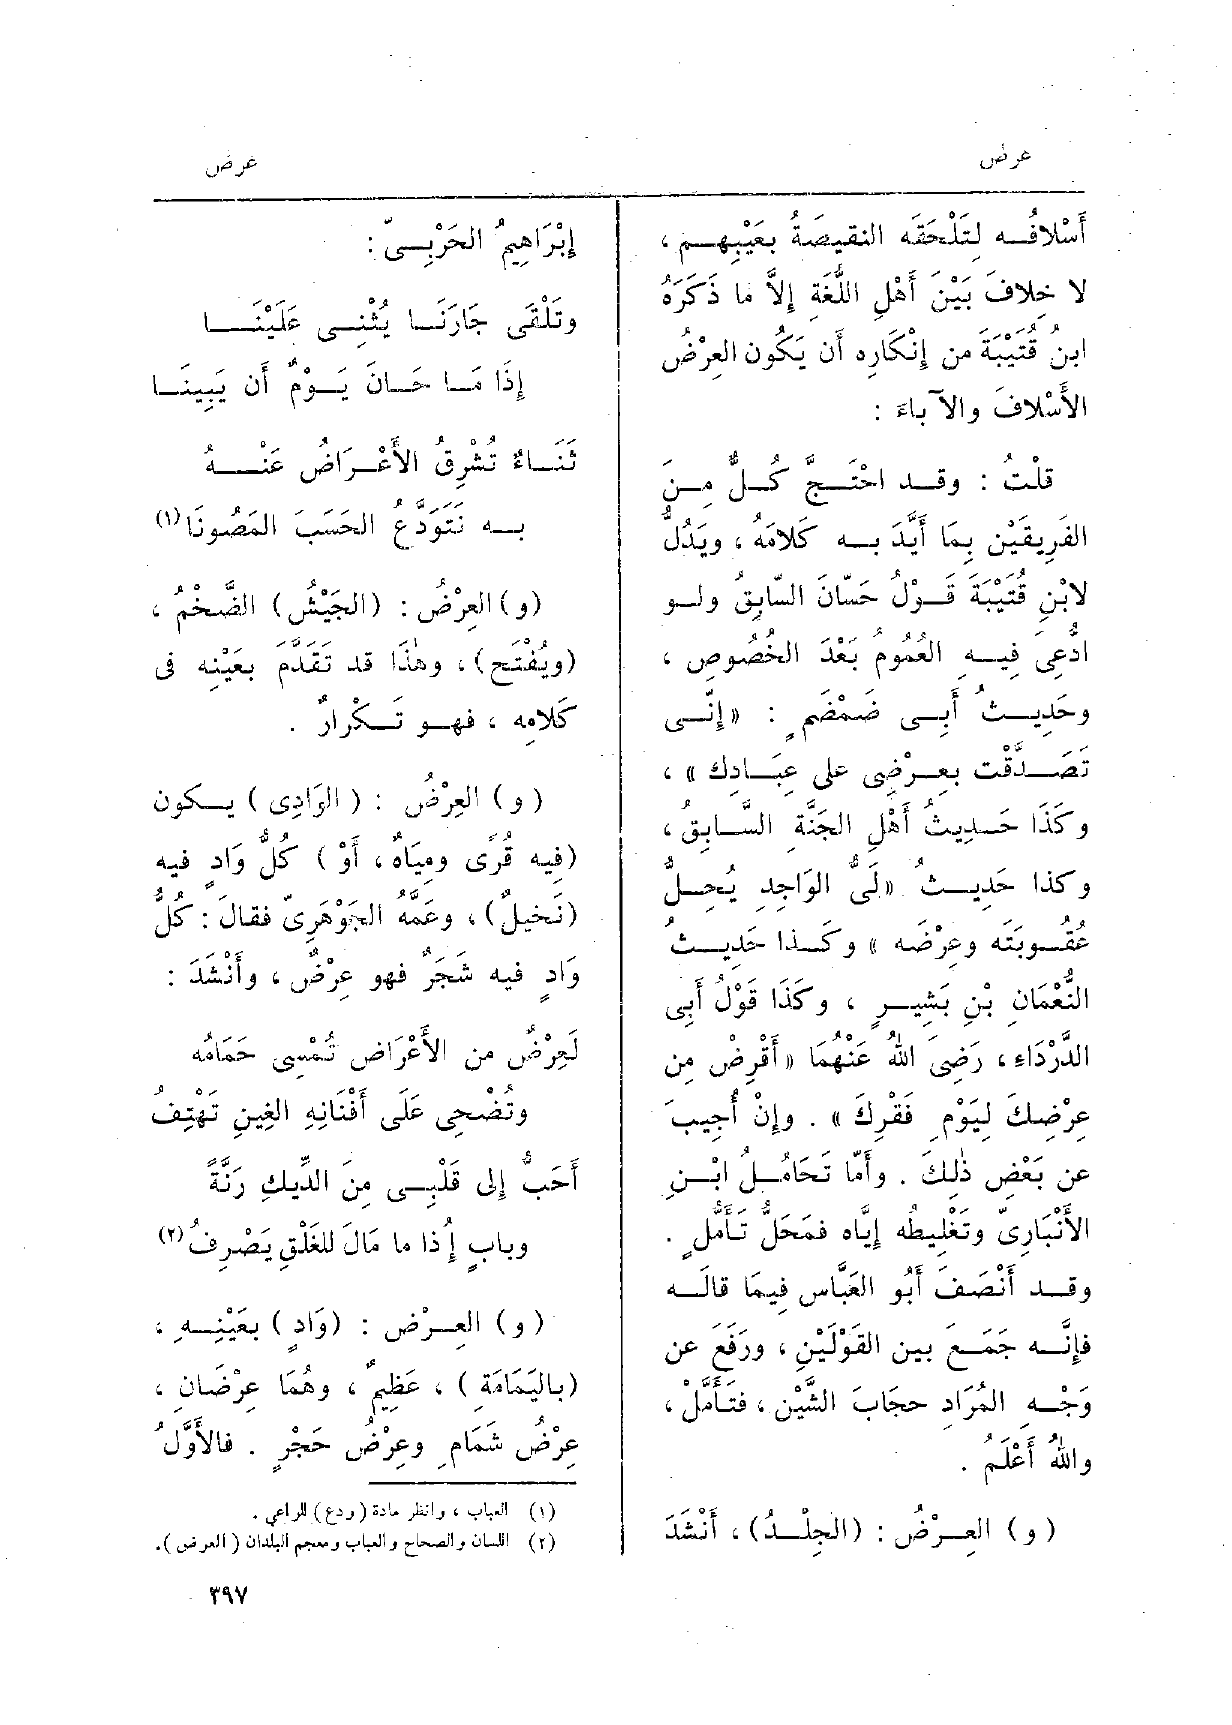 عرض
عرض
أَسْلافُه لتَلْحَقَه النقيصَةُ بعَيْبِهم ،
لا خِلافَ بَيْنَ أَهْلِ اللُّغَةِ إِلاَّ ما ذَكَرَهُ
ابنُ قُتَيْبَةَ من إِنْكاره أَن يَكُون العِرْضُ
الأَسْلافَ والآباءَ :
قلْتُ : وقد احْتَجَّ كُلٌّ مِنَ
الفَرِيقَيْنِ بِمَا أَيَّدَ به كَلامَهُ ، ويَدُلُّ
لابْنِ قُتَيْبَةَ قَوْلُ حَسّانَ السّابِقُ ولو
ادُّعِيَ فِيه العُمُومُ بَعْدَ الخُصُوصِ ،
وحَدِيثُ أَبِي ضَمْضَمٍ : «إِنِّي
تَصَدَّقْت بِعِرْضِي على عِبَادِك » ،
وكَذَا حَدِيثُ أَهْلِ الجَنَّةِ السَّابِقُ ،
وكذا حَدِيثُ «لَيُّ الوَاجِدِ يُحِلُّ
عُقُوبَتَه وعِرْضَه » وكَذا حَدِيثُ
النُّعْمَانِ بْنِ بَشِيرٍ ، وكَذَا قَوْلُ أَبِي
الدَّرْدَاءِ ، رَضِيَ اللهُ عَنْهُمَا «أَقْرِضْ مِن
عِرْضِكَ لِيَوْمِ فَقْرِكَ » . وإِنْ أُجِيبَ
عن بَعْضِ ذٰلِكَ . وأَمّا تَحَامُلُ ابْنِ
الأَنْبَارِيّ وتَغْلِيطُه إِيَّاه فمَحَلُّ تَأَمُّلٍ .
وقد أَنْصَفَ أَبُو العَبَّاسِ فِيمَا قالَه
فإِنَّه جَمَعَ بين القَوْلَيْنِ ، ورَفَعَ عن
وَجْهِ المُرَادِ حِجَابَ الشَّيْنِ ، فتَأَمَّلْ ،
واللهُ أَعْلَم .
(و) العِرْضُ : (الجِلْدُ) ، أَنْشَدَ
إِبْرَاهِيمُ الحَرْبِيّ :
وتَلْقَى جَارَنَا يُثْنِي عَلَيْنَا
إِذَا مَا حَانَ يَوْمٌ أَن يَبِينَا
ثَنَاءٌ تُشْرِقُ الأَعْرَاضُ عَنْهُ
به نَتَوَدَّعُ الحَسَبَ المَصُونَا (١)
(و) العِرْضُ : (الجَيْشُ) الضَّخْمُ ،
(ويُفْتَح) ، وهٰذَا قد تَقَدَّمَ بعَيْنِه فى
كَلامِه ، فهو تَكْرارٌ .
(و) العِرْضُ : (الوَادِي) يكون
(فِيه قُرًى ومِيَاهٌ ، أَوْ) كُلُّ وَادٍ فيه
(نَخِيلٌ) ، وعَمَّهُ الجَوْهَرِيّ فقالَ : كُلُّ
وَادٍ فيه شَجَرٌ فهو عِرْضٌ ، وأَنْشَدَ :
لَعِرْضٌ من الأَعْرَاضِ تُمْسِي حَمَامُه
وتُضْحِي عَلَى أَفْنَانِهِ الغِينِ تَهْتِفُ
أَحَبُّ إِلى قَلْبِي مِنَ الدِّيكِ رَنَّةً
وبابٍ إِذا ما مَالَ للغَلْقِ يَصْرِفُ (٢)
(و) العِرْض : (وَادٍ) بعَيْنِهِ ،
(باليَمَامَةِ) ، عَظِيمٌ ، وهُمَا عِرْضَانِ ،
عِرْضُ شَمَامِ وعِرْضُ حَجْرٍ . فالأَوَّلُ
(١) العباب ، وانظر مادة (ودع) للراعي .
(٢) اللسان والصحاح والعباب ومعجم البلدان (العرض).
٣٩٧